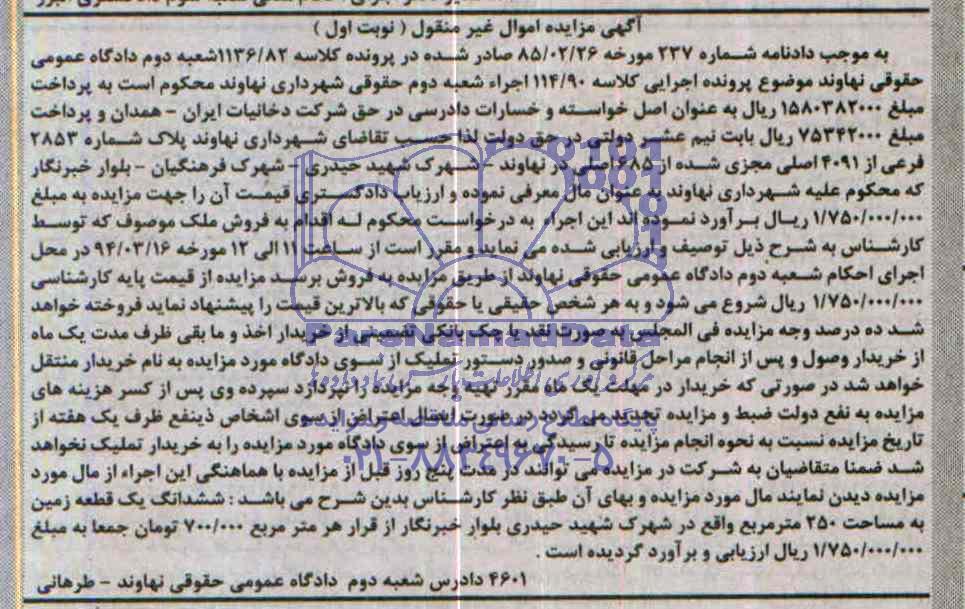 آگهی مزایده اموال غیر منقول ( نوبت اول )
به موجب دادنامه شماره ۲۳۷ مورخه ۸۵/۰۲/۲۶ صادر شده در پرونده کلاسه ۱۱۳۶/۸۲شعبه دوم دادگاه عمومی
حقوقی نهاوند موضوع پرونده اجرایی کلاسه ۱۱۴/۹۰ اجراء شعبه دوم حقوقی شهرداری نهاوند محکوم است به پرداخت
مبلغ ۱۵۸۰۳۸۲۰۰۰ ریال به عنوان اصل خواسته و خسارات دادرسی در حق شرکت دخانیات ایران - همدان و پرداخت
مبلغ ۷۵۳۴۲۰۰۰ ریال بابت نیم عشر دولتی در حق دولت لذا حسب تقاضای شهرداری نهاوند پلاک شماره ۲۸۵۳
فرعی از ۴۰۹۱ اصلی مجزی شده از ۶۸۵ اصلی در نهاوند - شهرک شهید حیدری - شهرک فرهنگیان - بلوار خبرنگار
که محکوم علیه شهرداری نهاوند به عنوان مال معرفی نموده و ارزیاب دادگستری قیمت آن را جهت مزایده به مبلغ
۱/۷۵۰/۰۰۰/۰۰۰ ریال برآورد نموده اند این اجراء به درخواست محکوم له اقدام به فروش ملک موصوف که توسط
کارشناس به شرح ذیل توصیف و ارزیابی شده می نماید و مقرر است از ساعت ۱۱ الی ۱۲ مورخه ۹۴/۰۳/۱۶ در محل
اجرای احکام شعبه دوم دادگاه عمومی حقوقی نهاوند از طریق مزایده به فروش برسد مزایده از قیمت پایه کارشناسی
۱/۷۵۰/۰۰۰/۰۰۰ ریال شروع می شود و به هر شخص حقیقی یا حقوقی که بالاترین قیمت را پیشنهاد نماید فروخته خواهد
شد ده درصد وجه مزایده فی المجلس به صورت نقد یا چک بانکی تضمینی از خریدار اخذ و ما بقی ظرف مدت یک ماه
از خریدار وصول و پس از انجام مراحل قانونی و صدور دستور تملیک از سوی دادگاه مورد مزایده به نام خریدار منتقل
خواهد شد در صورتی که خریدار در مهلت یک ماه مقرر تهیه وجه مزایده را نپردازد سپرده وی پس از کسر هزینه های
مزایده به نفع دولت ضبط و مزایده تجدید می گردد در صورت اعتراض از سوی اشخاص ذینفع ظرف یک هفته از
تاریخ مزایده نسبت به نحوه انجام مزایده تا رسیدگی به اعتراض از سوی دادگاه مورد مزایده را به خریدار تملیک نخواهد
شد ضمنا متقاضیان به شرکت در مزایده می توانند در مدت پنج روز قبل از مزایده با هماهنگی این اجراء از مال مورد
مزایده دیدن نمایند مال مورد مزایده و بهای آن طبق نظر کارشناس بدین شرح می باشد : ششدانگ یک قطعه زمین
به مساحت ۲۵۰ مترمربع واقع در شهرک شهید حیدری بلوار خبرنگار از قرار هر متر مربع ۷۰۰/۰۰۰ تومان جمعا به مبلغ
۱/۷۵۰/۰۰۰/۰۰۰ ریال ارزیابی و برآورد گردیده است .
۴۶۰۱ دادرس شعبه دوم دادگاه عمومی حقوقی نهاوند - طرهانی
ParsNamadData
پایگاه اطلاع رسانی مناقصه و مزایده
۰۲۱-۸۸۳۴۹۶۷۰-۵